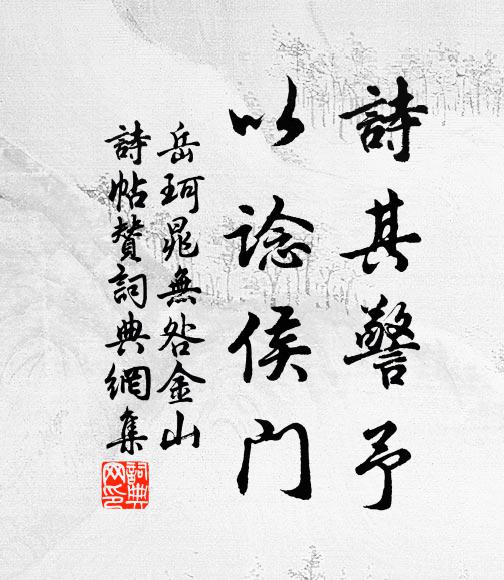 詩其警予
以諗侯門
岳珂晁無咎金山
詩帖贊詞典網集
詞典
网印